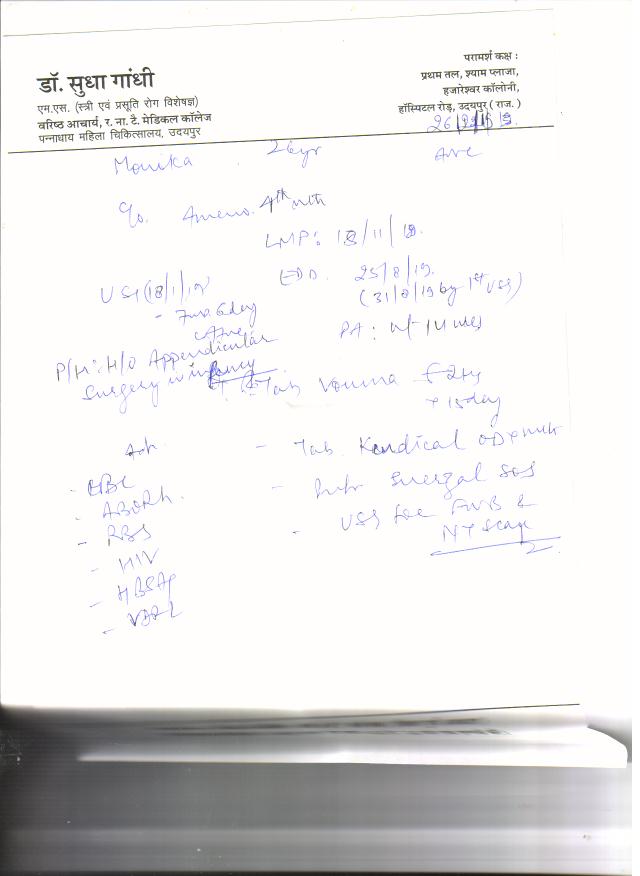 डॉ. सुधा गांधी
एम.एस. (स्त्री एवं प्रसूति रोग विशेषज्ञ)
वरिष्ठ आचार्य, र. ना. टै. मेडिकल कॉलेज
पन्नाधाय महिला चिकित्सालय, उदयपुर
परामर्श कक्ष :
प्रथम तल, श्याम प्लाजा,
हजारेश्वर कॉलोनी,
हॉस्पिटल रोड़, उदयपुर ( राज. )
Monika 26yr
Ameno. 4th mth
LMP: 18/11/18.
EDD. 25/8/19.
(31/8/19 by 1st USG)
USG (18/1/19)
PA: ut 14 wks
P/H: H/O Appendicular
Surgery in infancy
Tab
Adv
Tab. OD x mth
- CBC
- ABORh.
SOS
- RBS
- USG for FWB &
NT Scan
- HIV
- HBSAg
- VDRL